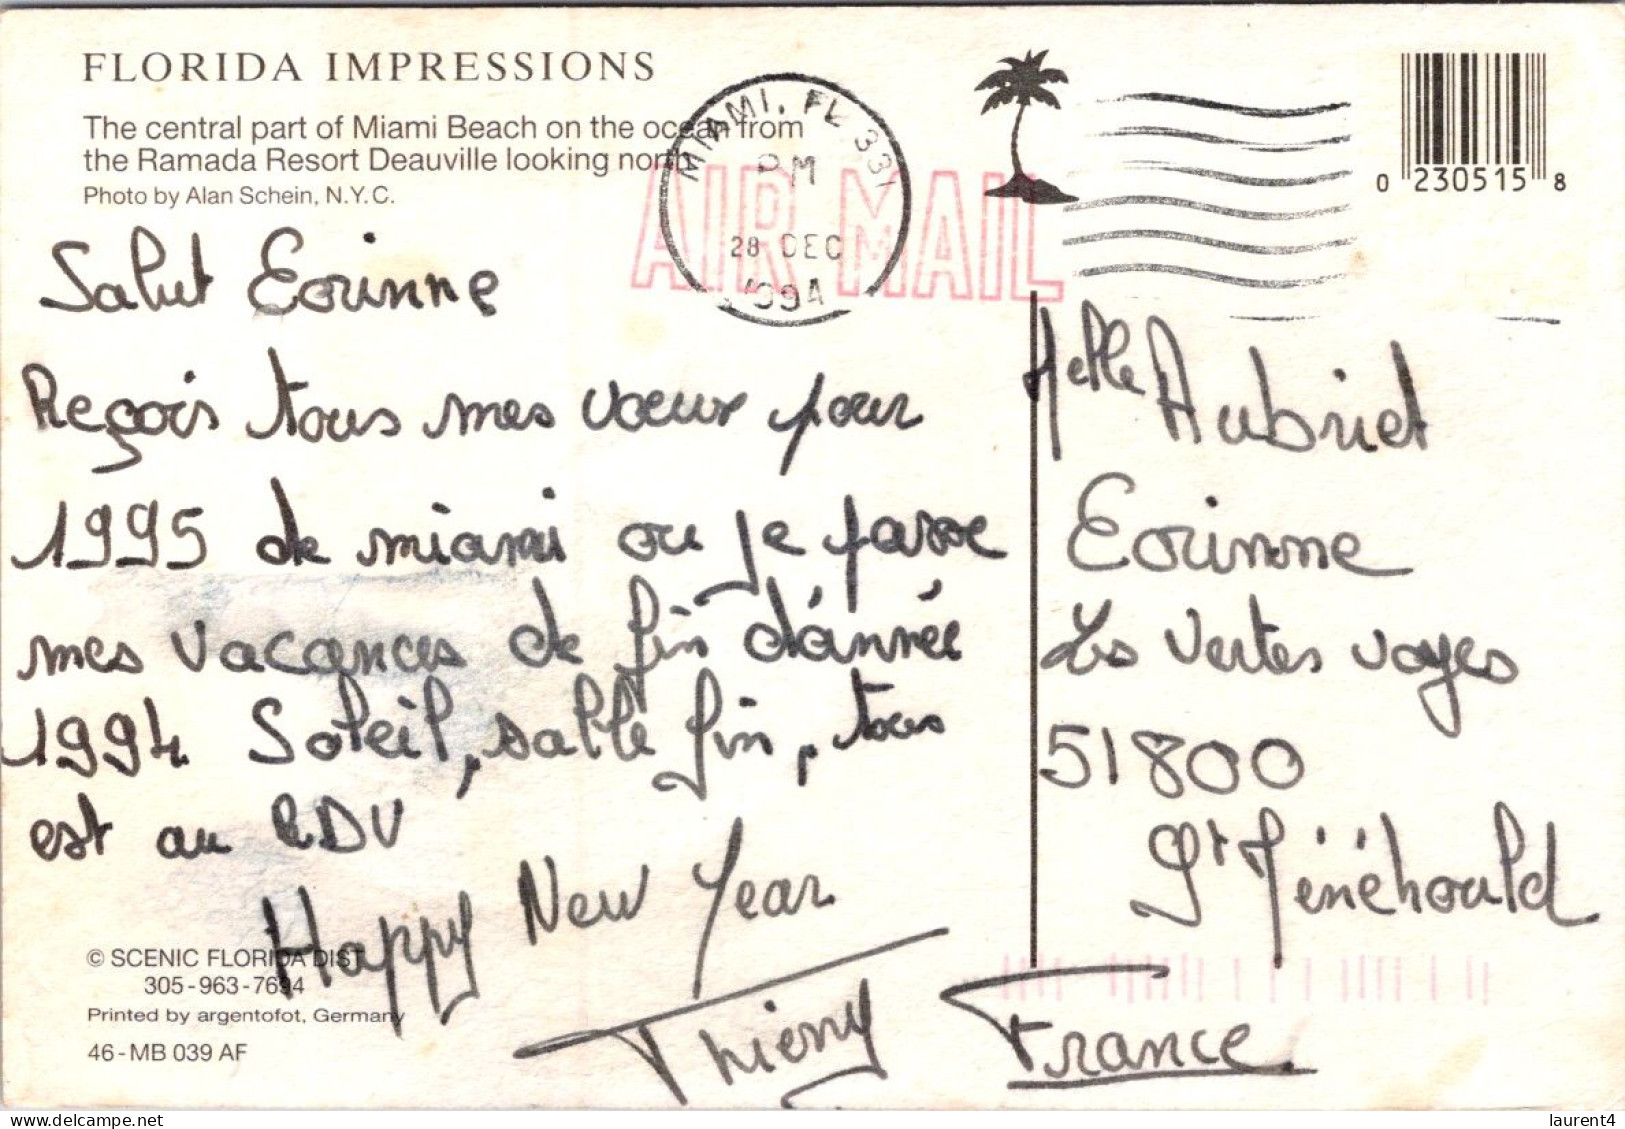 FLORIDA IMPRESSIONS
The central part of Miami Beach on the ocean from
the Ramada Resort Deauville looking north
Photo by Alan Schein, N.Y.C.
MIAMI, FL 331
PM
28 DEC
1994
AIR MAIL
0 230515 8
Salut Corinne
Reçois tous mes vœux pour
1995 de miami ou je passe
mes vacances de fin d'année
1994 Soleil, sable fin, tous
est au RDV
Happy New Year
Thierry
Melle Aubriet
Corinne
Les Vertes voyes
51800
St Ménéhould
France.
© SCENIC FLORIDA DIST
305-963-7694
Printed by argentofot, Germany
46-MB 039 AF
laurent4